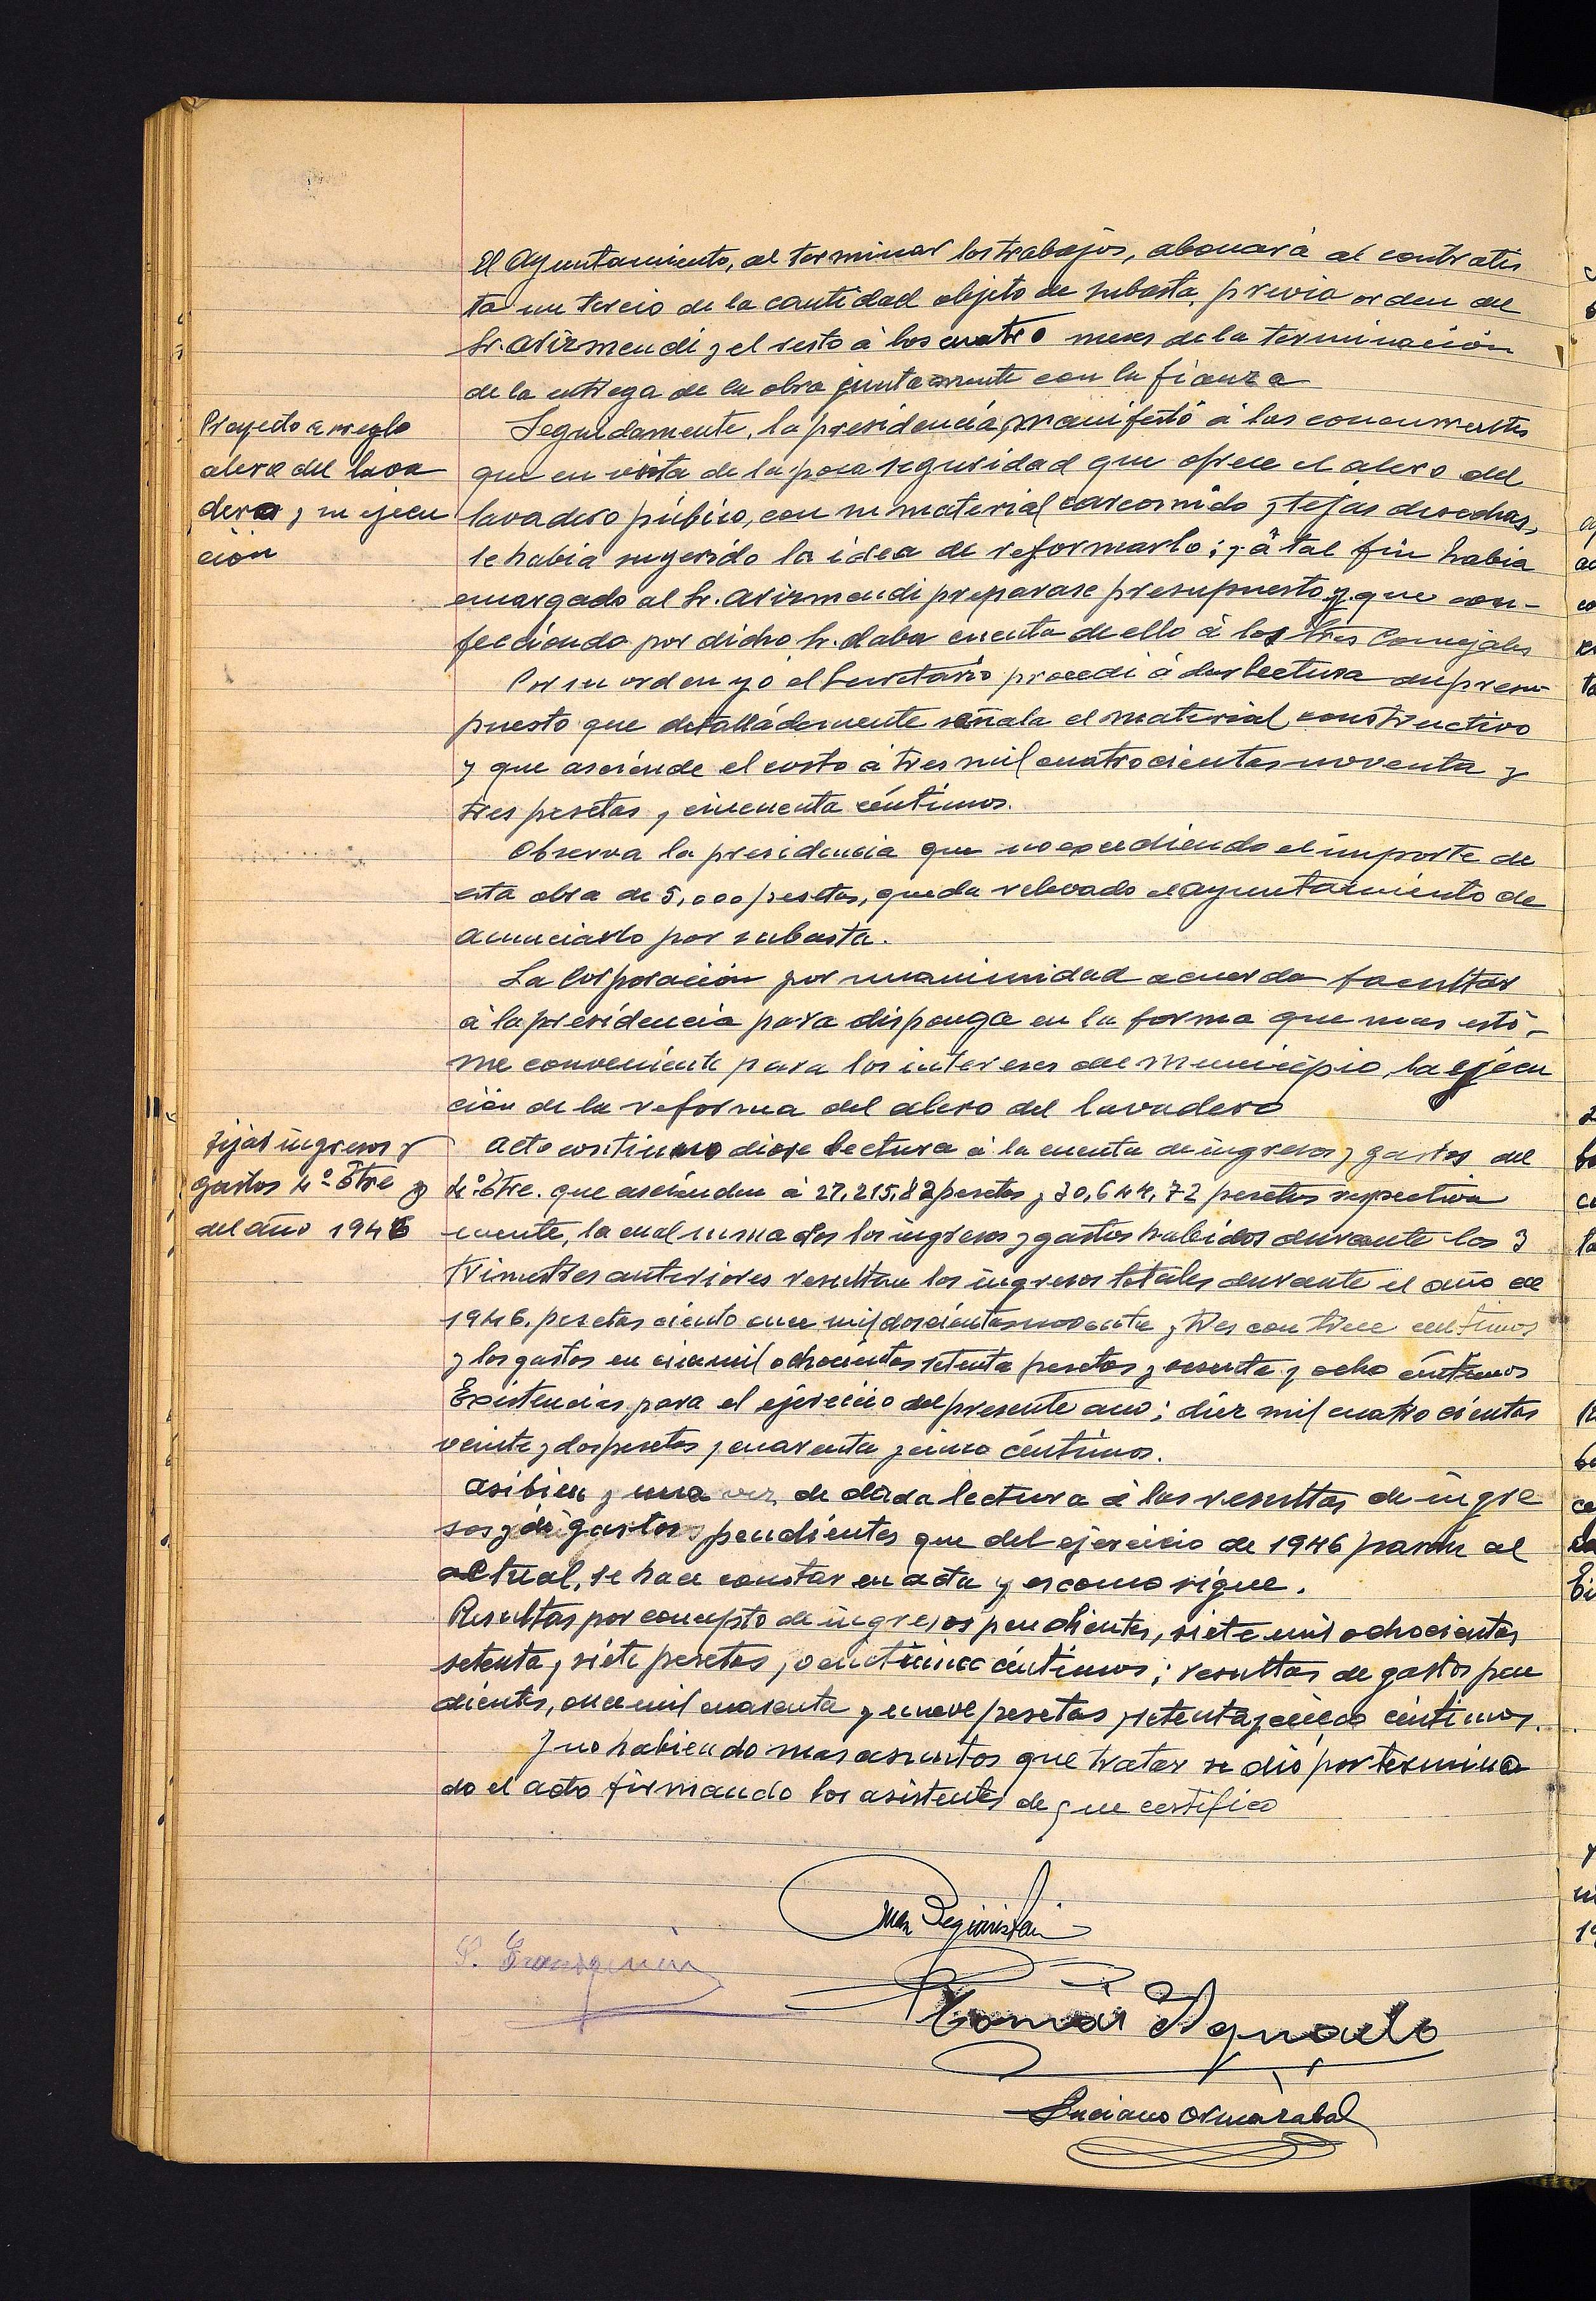 El Ayuntamiento, al terminar los trabajos, abonará al contratis
ta un tercio de la cantidad objeto de subasta, previa orden del
Sr. Arizmendi y el resto á los cuatro meses de la terminación
de la entrega de la obra juntamente con la fianza
Proyecto arreglo
alero del lava
dero y su ejecu
ción
Seguidamente, la presidencia, manifestó á los concurrentes
que en vista de la poca seguridad que ofrece el alero del
lavadero público, con su material carcomido y tejas desechas,
se habia sugerido la idea de reformarlo; y á tal fin habia
encargado al Sr. Arizmendi preparase presupuesto y que con-
fecciondo por dicho Sr. daba cuenta de ello á los tres Concejales
Por su orden yó el Secretario procedi á dar lectura del presu
puesto que detalládamente señala el material constructivo
y que asciende el costo á tres mil cuatrocientas noventa y
tres pesetas y cincuenta céntimos.
Observa la presidencia que no excediendo el importe de
esta obra de 5,000 pesetas, queda relevado el Ayuntamiento de
anunciarlo por subasta.
La Corporación por unanimidad acuerda facultar
á la presidencia para disponga en la forma que mas esti-
me conveniente para los intereses del Municipio, la ejecu
ción de la reforma del alero del lavadero
Fijar ingresos y
gastos 4º Stre y
del año 1946
Acto continuo diose lectura á la cuenta de ingresos y gastos del
4º Stre. que ascienden á 27,215,82 pesetas y 30,644,72 pesetas respectiva
mente, la cual sumados los ingresos y gastos habidos durante los 3
trimestres anteriores resultan los ingresos totales durante el año de
1946. pesetas ciento once mil doscientas noventa y tres con trece centimos
y los gastos en cien mil ochocientas setenta pesetas y sesenta y ocho céntimos
Existencias para el ejercicio del presente año; diez mil cuatrocientas
veinte y dos pesetas y cuarenta y cinco céntimos.
Asibien y una vez de dada lectura á las resultas de ingre
sos y de gastos pendientes que del ejercicio de 1946 pasan al
actual, se hace constar en acta y es como sigue.
Resultas por concepto de ingresos pendientes, siete mil ochocientas
setenta y siete pesetas y céntimos; resultas de gastos pen
dientes, once mil cuarenta y nueve pesetas y setenta y cinco céntimos.
Y no habiendo mas asuntos que tratar se dió por termina
do el acto firmando los asistentes de que certifico
Juan Beguiristain
Tomás Aguado
Luciano Ormazabal